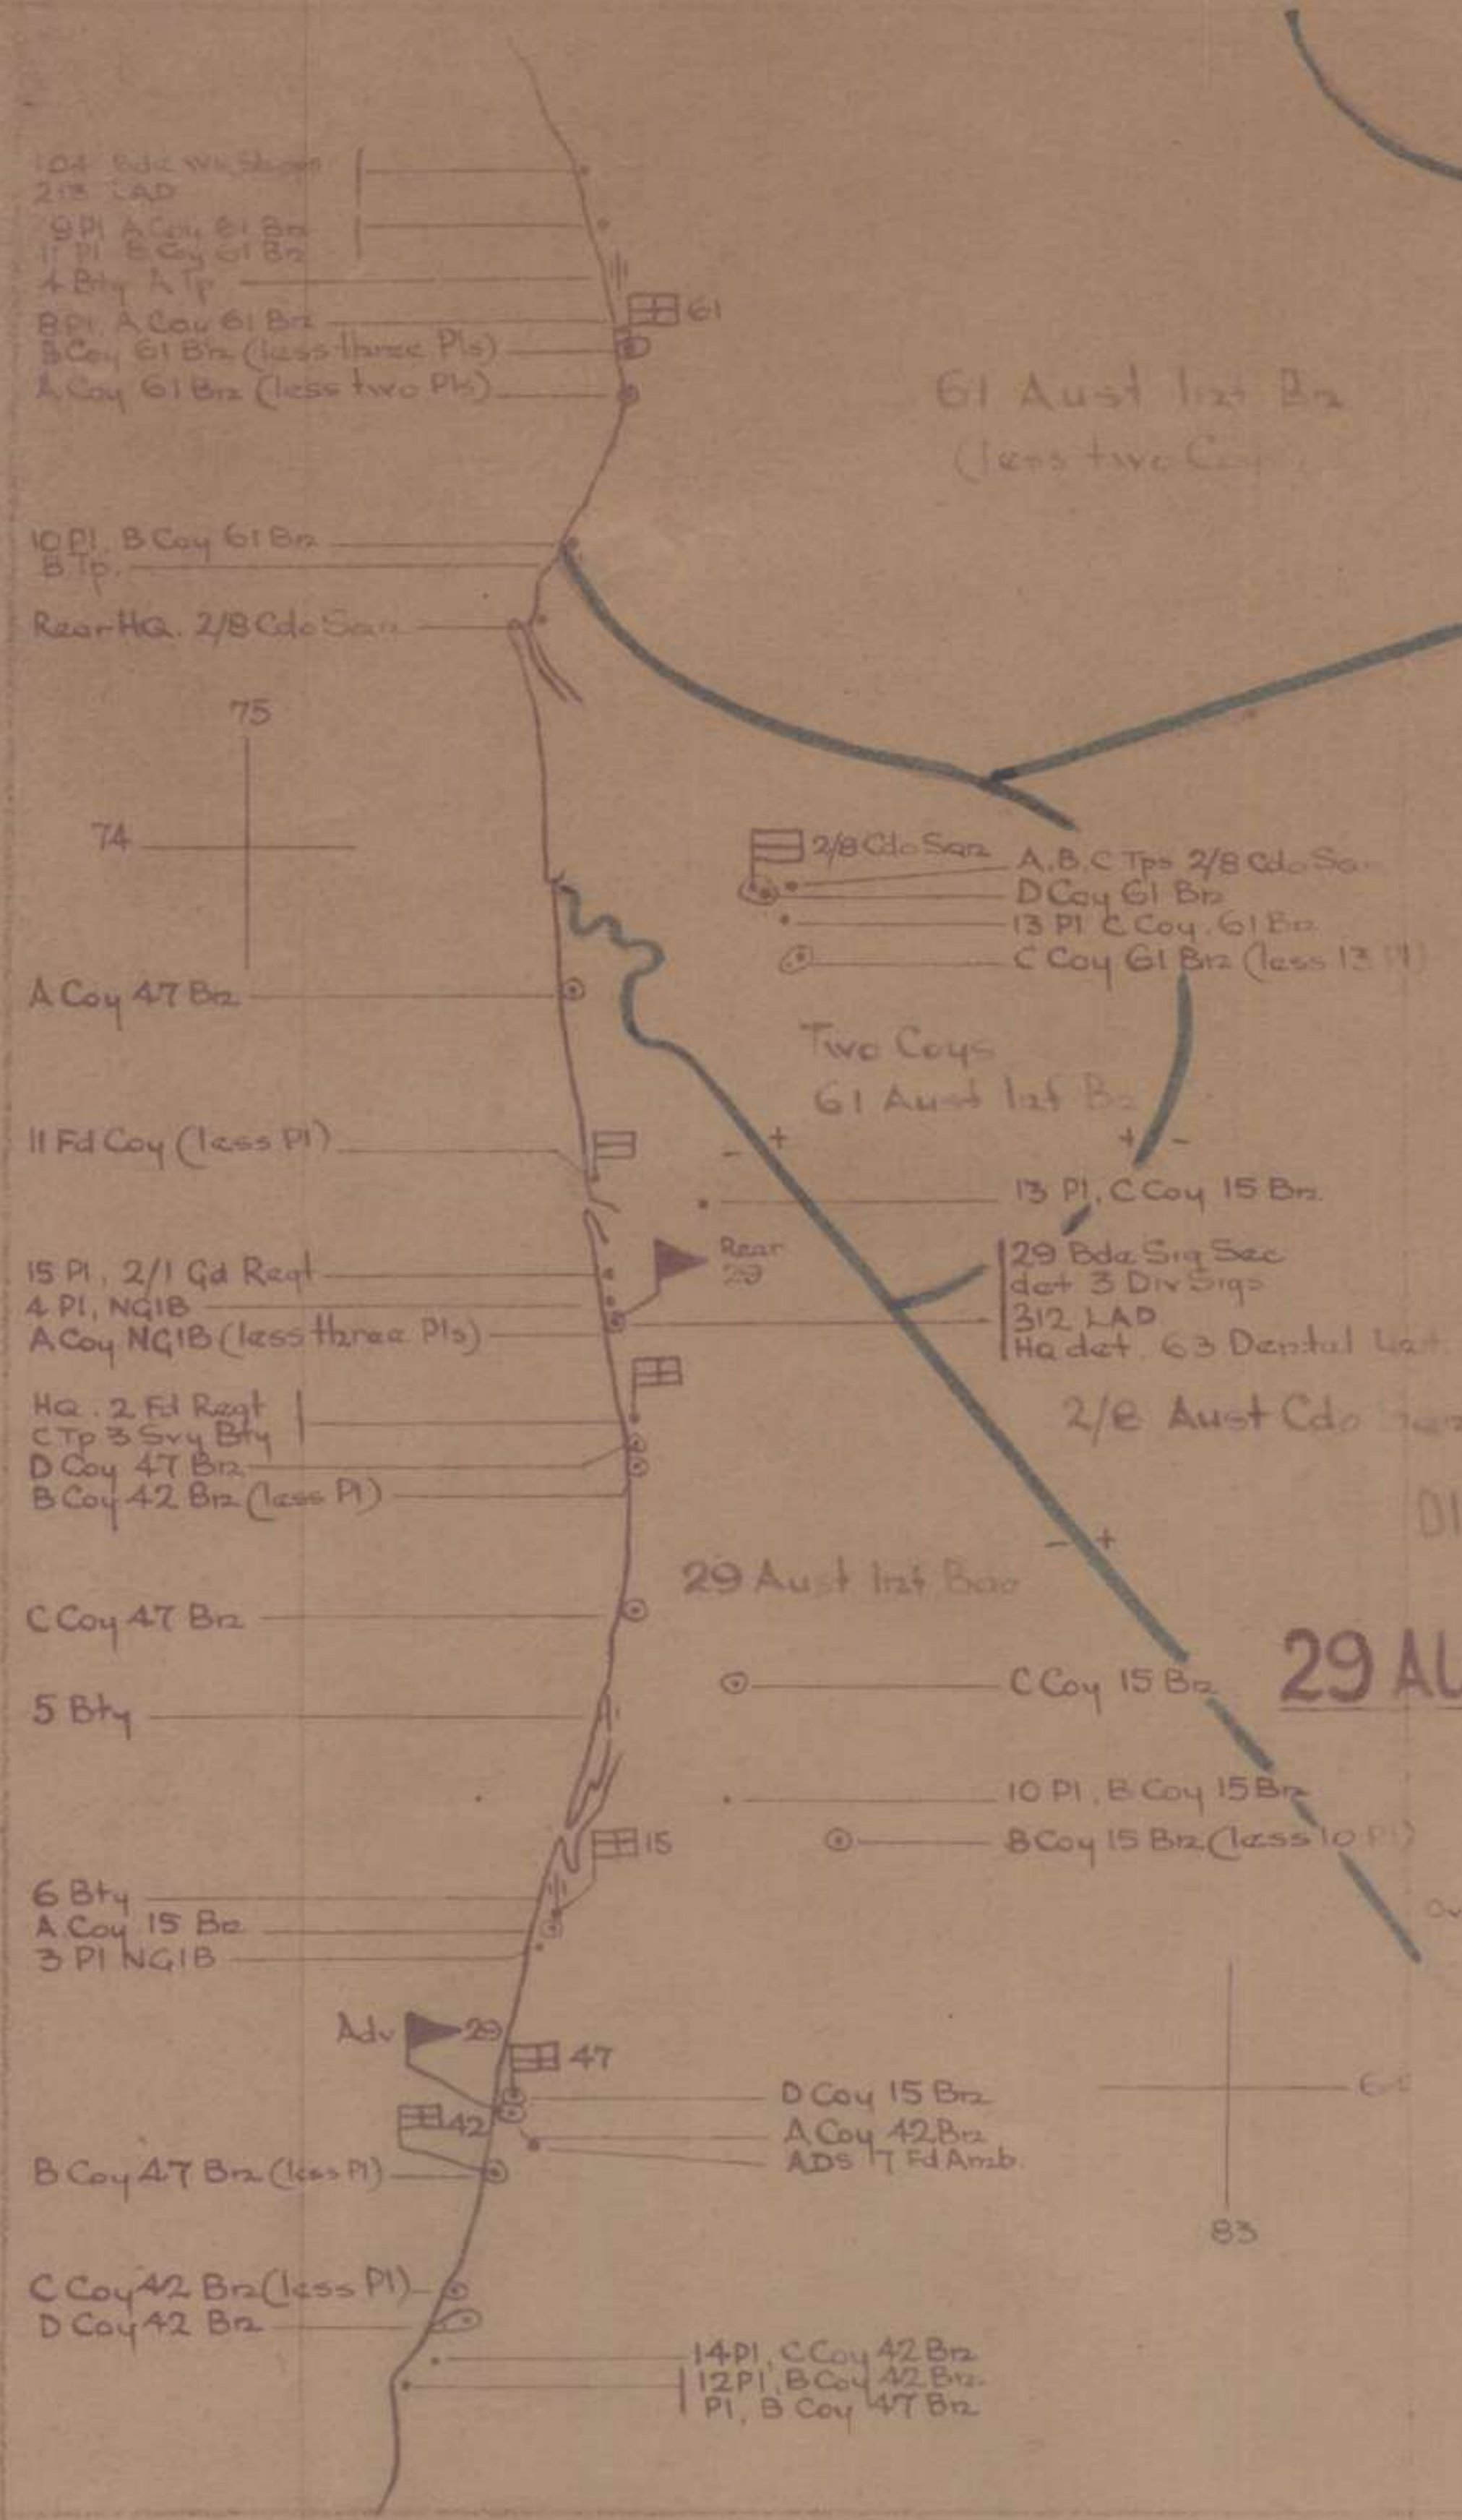 104 Bde Wkshops
213 LAD
9 Pl A Coy 61 Bn
11 Pl B Coy 61 Bn
4 Bty A Tp
8 Pl. A Coy 61 Bn
61
B Coy 61 Bn (less three Pls)
A Coy 61 Bn (less two Pls)
61 Aust Inf Bn
(less two Coys
10 Pl. B Coy 61 Bn
B Tp.
Rear HQ. 2/8 Cdo Sqn
75
74
2/8 Cdo Sqn
A.B.C Tps 2/8 Cdo Sq
D Coy 61 Bn
13 Pl C Coy. 61 Bn
C Coy 61 Bn (less 13 Pl)
A Coy 47 Bn
Two Coys
61 Aust Inf Bn
11 Fd Coy (less Pl)
- +
+ -
13 Pl, C Coy 15 Bn
Rear
29
15 Pl, 2/1 Gd Regt
4 Pl, NGIB
A Coy NGIB (less three Pls)
29 Bde Sig Sec
det 3 Div Sigs
312 LAD
HQ det. 63 Dental Unit
HQ. 2 Fd Regt
C Tp 3 Svy Bty
D Coy 47 Bn
B Coy 42 Bn (less Pl)
2/8 Aust Cdo Sqn
DI
- +
29 Aust Inf Bde
C Coy 47 Bn
29 AU
C Coy 15 Bn
5 Bty
10 Pl, B Coy 15 Bn
B Coy 15 Bn (less 10 Pl)
15
6 Bty
A Coy 15 Bn
3 Pl NGIB
Adv 29
47
D Coy 15 Bn
A Coy 42 Bn
ADS 7 Fd Amb.
42
B Coy 47 Bn (less Pl)
83
C Coy 42 Bn (less Pl)
D Coy 42 Bn
14 Pl, C Coy 42 Bn
12 Pl, B Coy 42 Bn.
Pl, B Coy 47 Bn